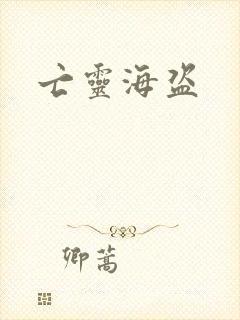 亡靈海盜
卿蒿